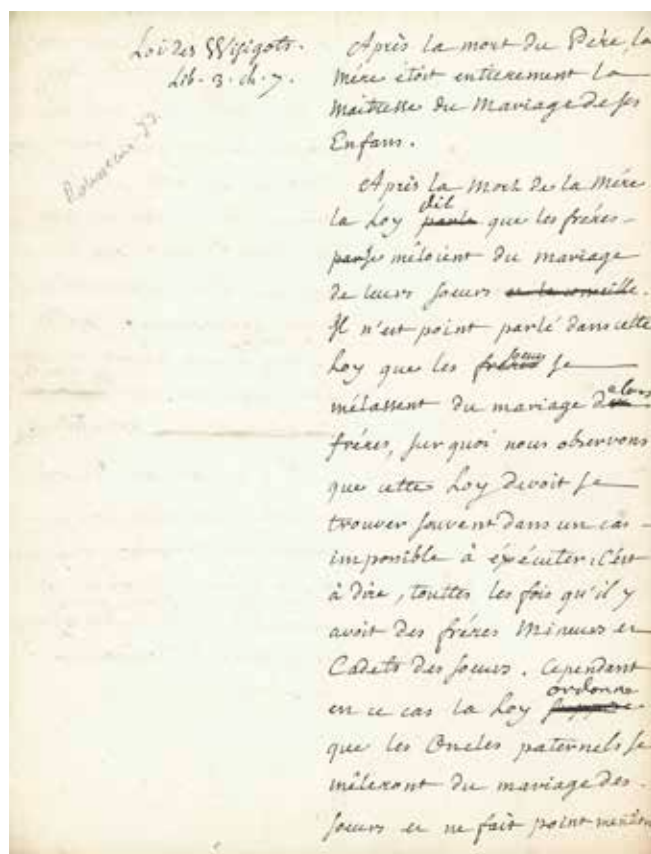 Loi des Wisigots.
Lib. 3. ch. 7.
Après la mort du Pére, la
mére étoit entierement la
Maitresse du Mariage de ses
Enfans.
Après la Mort de la Mére
dit
la Loy parle que les fréres
par se méloient du mariage
de leurs soeurs et le conseille.
Il n'est point parlé dans cette
soeurs
Loy que les fréres se
mélassent du mariage de leurs
fréres, sur quoi nous observons
que cette Loy devoit se
trouver souvent dans un cas
impossible à éxécuter. C'est
à dire, touttes les fois qu'il y
avoit des fréres Mineurs et
Cadets des soeurs. Cependant
ordonne
en ce cas la Loy
que les Oncles paternels se
mêleront du mariage des
soeurs et ne fait point mention